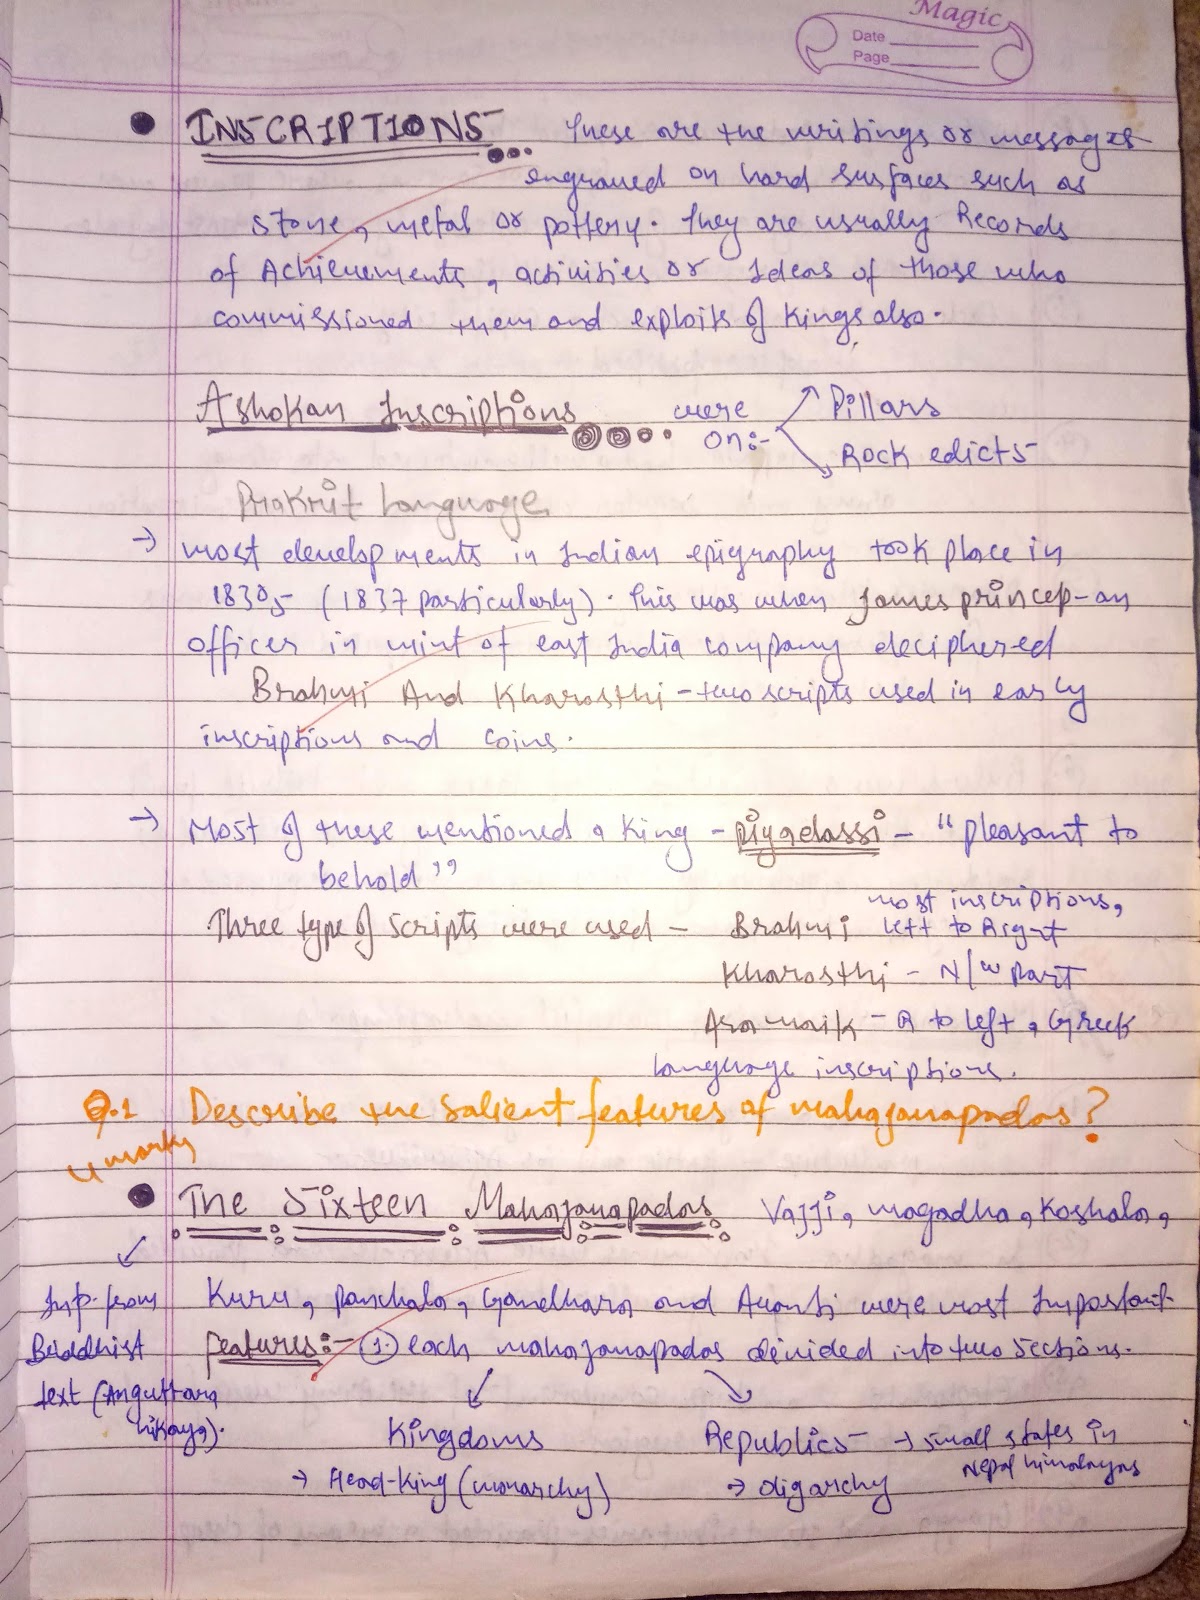 Magic
Date
Page
INSCRIPTIONS These are the writings or messages
engraved on hard surfaces such as
stone, metal or pottery. They are usually Records
of Achievements, activities or Ideas of those who
commissioned them and exploits of Kings also.
Ashokan Inscriptions were on:- Pillars
Rock edicts
Prakrit Language
→ most developments in Indian epigraphy took place in
1830s (1837 particularly). This was when James princep - an
officer in mint of east India company deciphered
Brahmi And Kharosthi - two scripts used in early
inscriptions and coins.
→ Most of these mentioned a King - piyadassi - "pleasant to
behold"
Three type of scripts were used - Brahmi most inscriptions, left to Right
Kharosthi - N/W part
Aramaik - R to left, Greek
language inscriptions.
Q.1 Describe the salient features of mahajanapadas?
4 marks
The Sixteen Mahajanapadas Vajji, magadha, Koshala,
Kuru, panchala, Gandhara and Avanti were most Important.
Inf. from
Buddhist
text (Anguttara
nikaya).
features:- 1. each mahajanapadas divided into two sections.
Kingdoms Republics → small states in
Nepal himalayas
→ Head-King (monarchy) → oligarchy